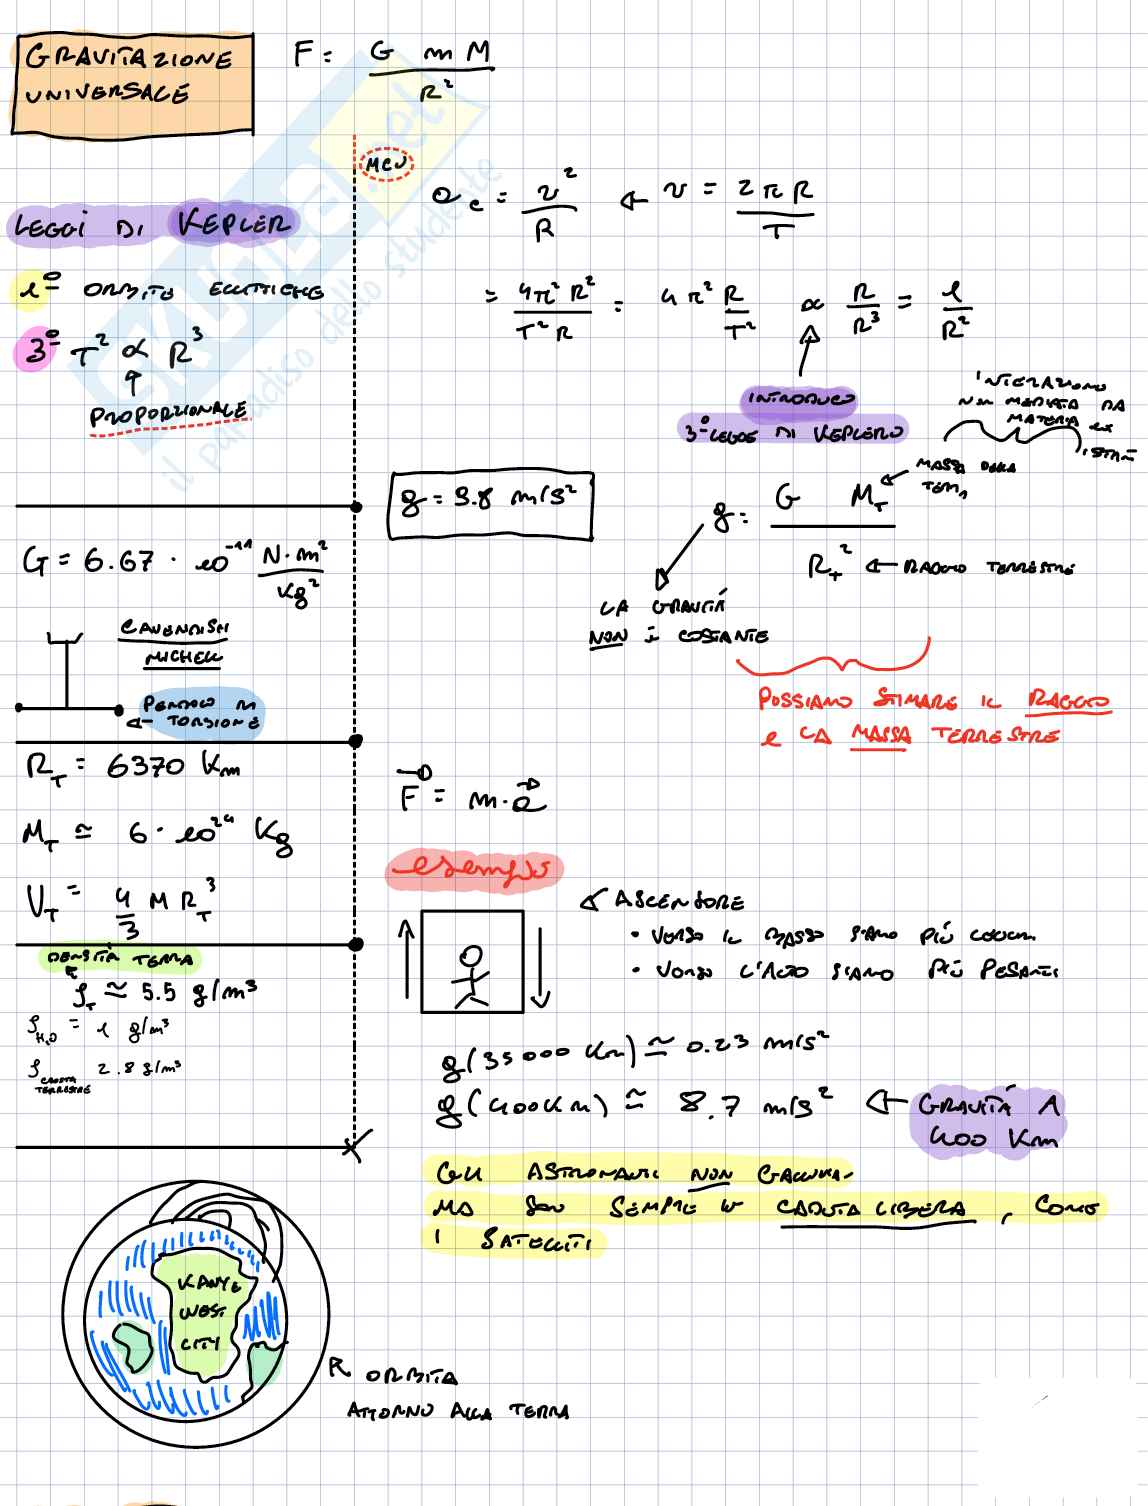 GRAVITAZIONE
UNIVERSALE
F = G m M / R²
LEGGI DI KEPLER
1° ORBITE ELLITTICHE
3° T² ∝ R³
PROPORZIONALE
MCU
a_c = v² / R ← v = 2πR / T
= 4π² R² / T² R = 4π² R / T² ∝ R / R³ = 1 / R²
INTRODUCO
3° LEGGE DI KEPLERO
INTERAZIONE
NON MEDIATA DA
MATERIA
g = 9.8 m/s²
g = G M_T / R_T²
MASSA DELLA
TERRA
← RAGGIO TERRESTRE
LA GRAVITÀ
NON È COSTANTE
POSSIAMO STIMARE IL RAGGIO
e LA MASSA TERRESTRE
G = 6.67 · 10⁻¹¹ N·m² / kg²
CAVENDISH
MICHELL
PENDOLO DI
TORSIONE
R_T = 6370 Km
M_T ≃ 6 · 10²⁴ Kg
V_T = 4/3 π R_T³
DENSITÀ TERRA
ρ_T ≈ 5.5 g/m³
ρ_H₂O = 1 g/m³
ρ_CROSTA TERRESTRE 2.8 g/m³
F = m · a
esempio
← ASCENSORE
• VERSO IL BASSO SIAMO PIÙ LEGGERI
• VERSO L'ALTO SIAMO PIÙ PESANTI
g(35000 Km) ≃ 0.23 m/s²
g(400Km) ≃ 8.7 m/s² ← GRAVITÀ A
400 Km
GLI ASTRONAUTI NON GALLEGGIANO
MA SONO SEMPRE IN CADUTA LIBERA, COME
I SATELLITI
KANYE
WEST
CITY
R ORBITA
ATTORNO ALLA TERRA
SKUOLA.net
il paradiso dello studente